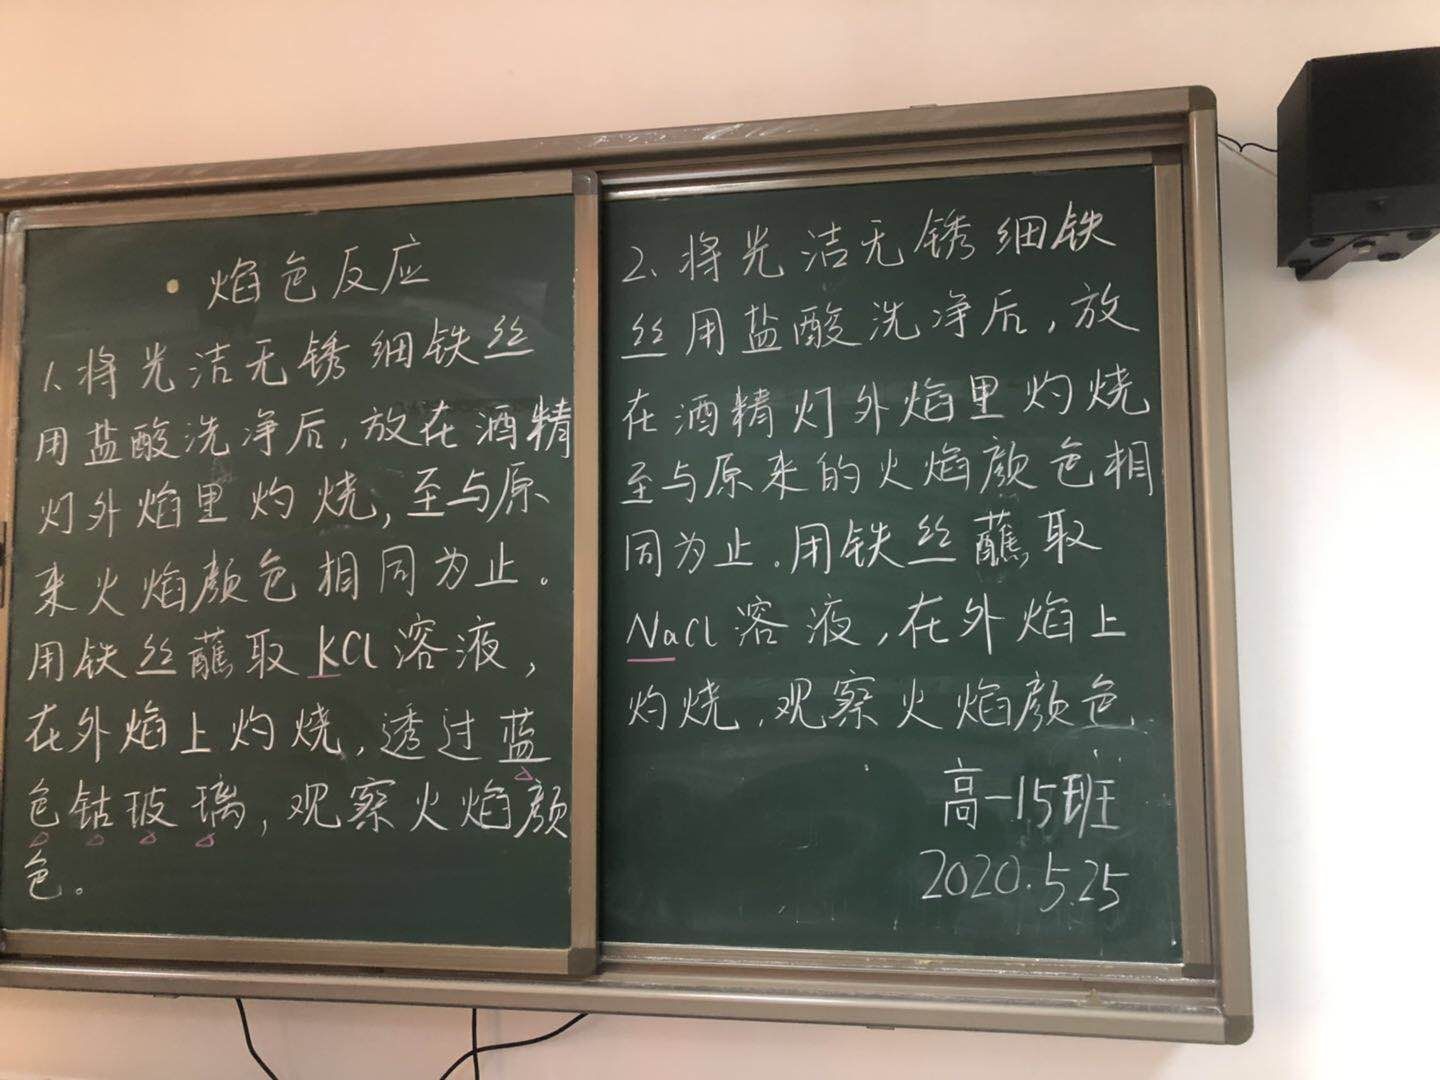 焰色反应
1、将光洁无锈细铁丝
用盐酸洗净后,放在酒精
灯外焰里灼烧,至与原
来火焰颜色相同为止。
用铁丝蘸取KCl溶液,
在外焰上灼烧,透过蓝
色钴玻璃,观察火焰颜
色。
2、将光洁无锈细铁
丝用盐酸洗净后,放
在酒精灯外焰里灼烧
至与原来的火焰颜色相
同为止。用铁丝蘸取
NaCl溶液,在外焰上
灼烧,观察火焰颜色
高一15班
2020.5.25